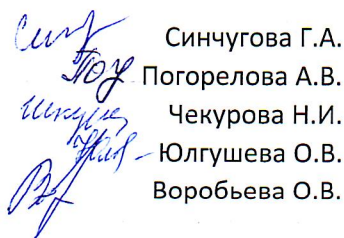 Синчугова Г.А.
Погорелова А.В.
Чекурова Н.И.
Юлгушева О.В.
Воробьева О.В.